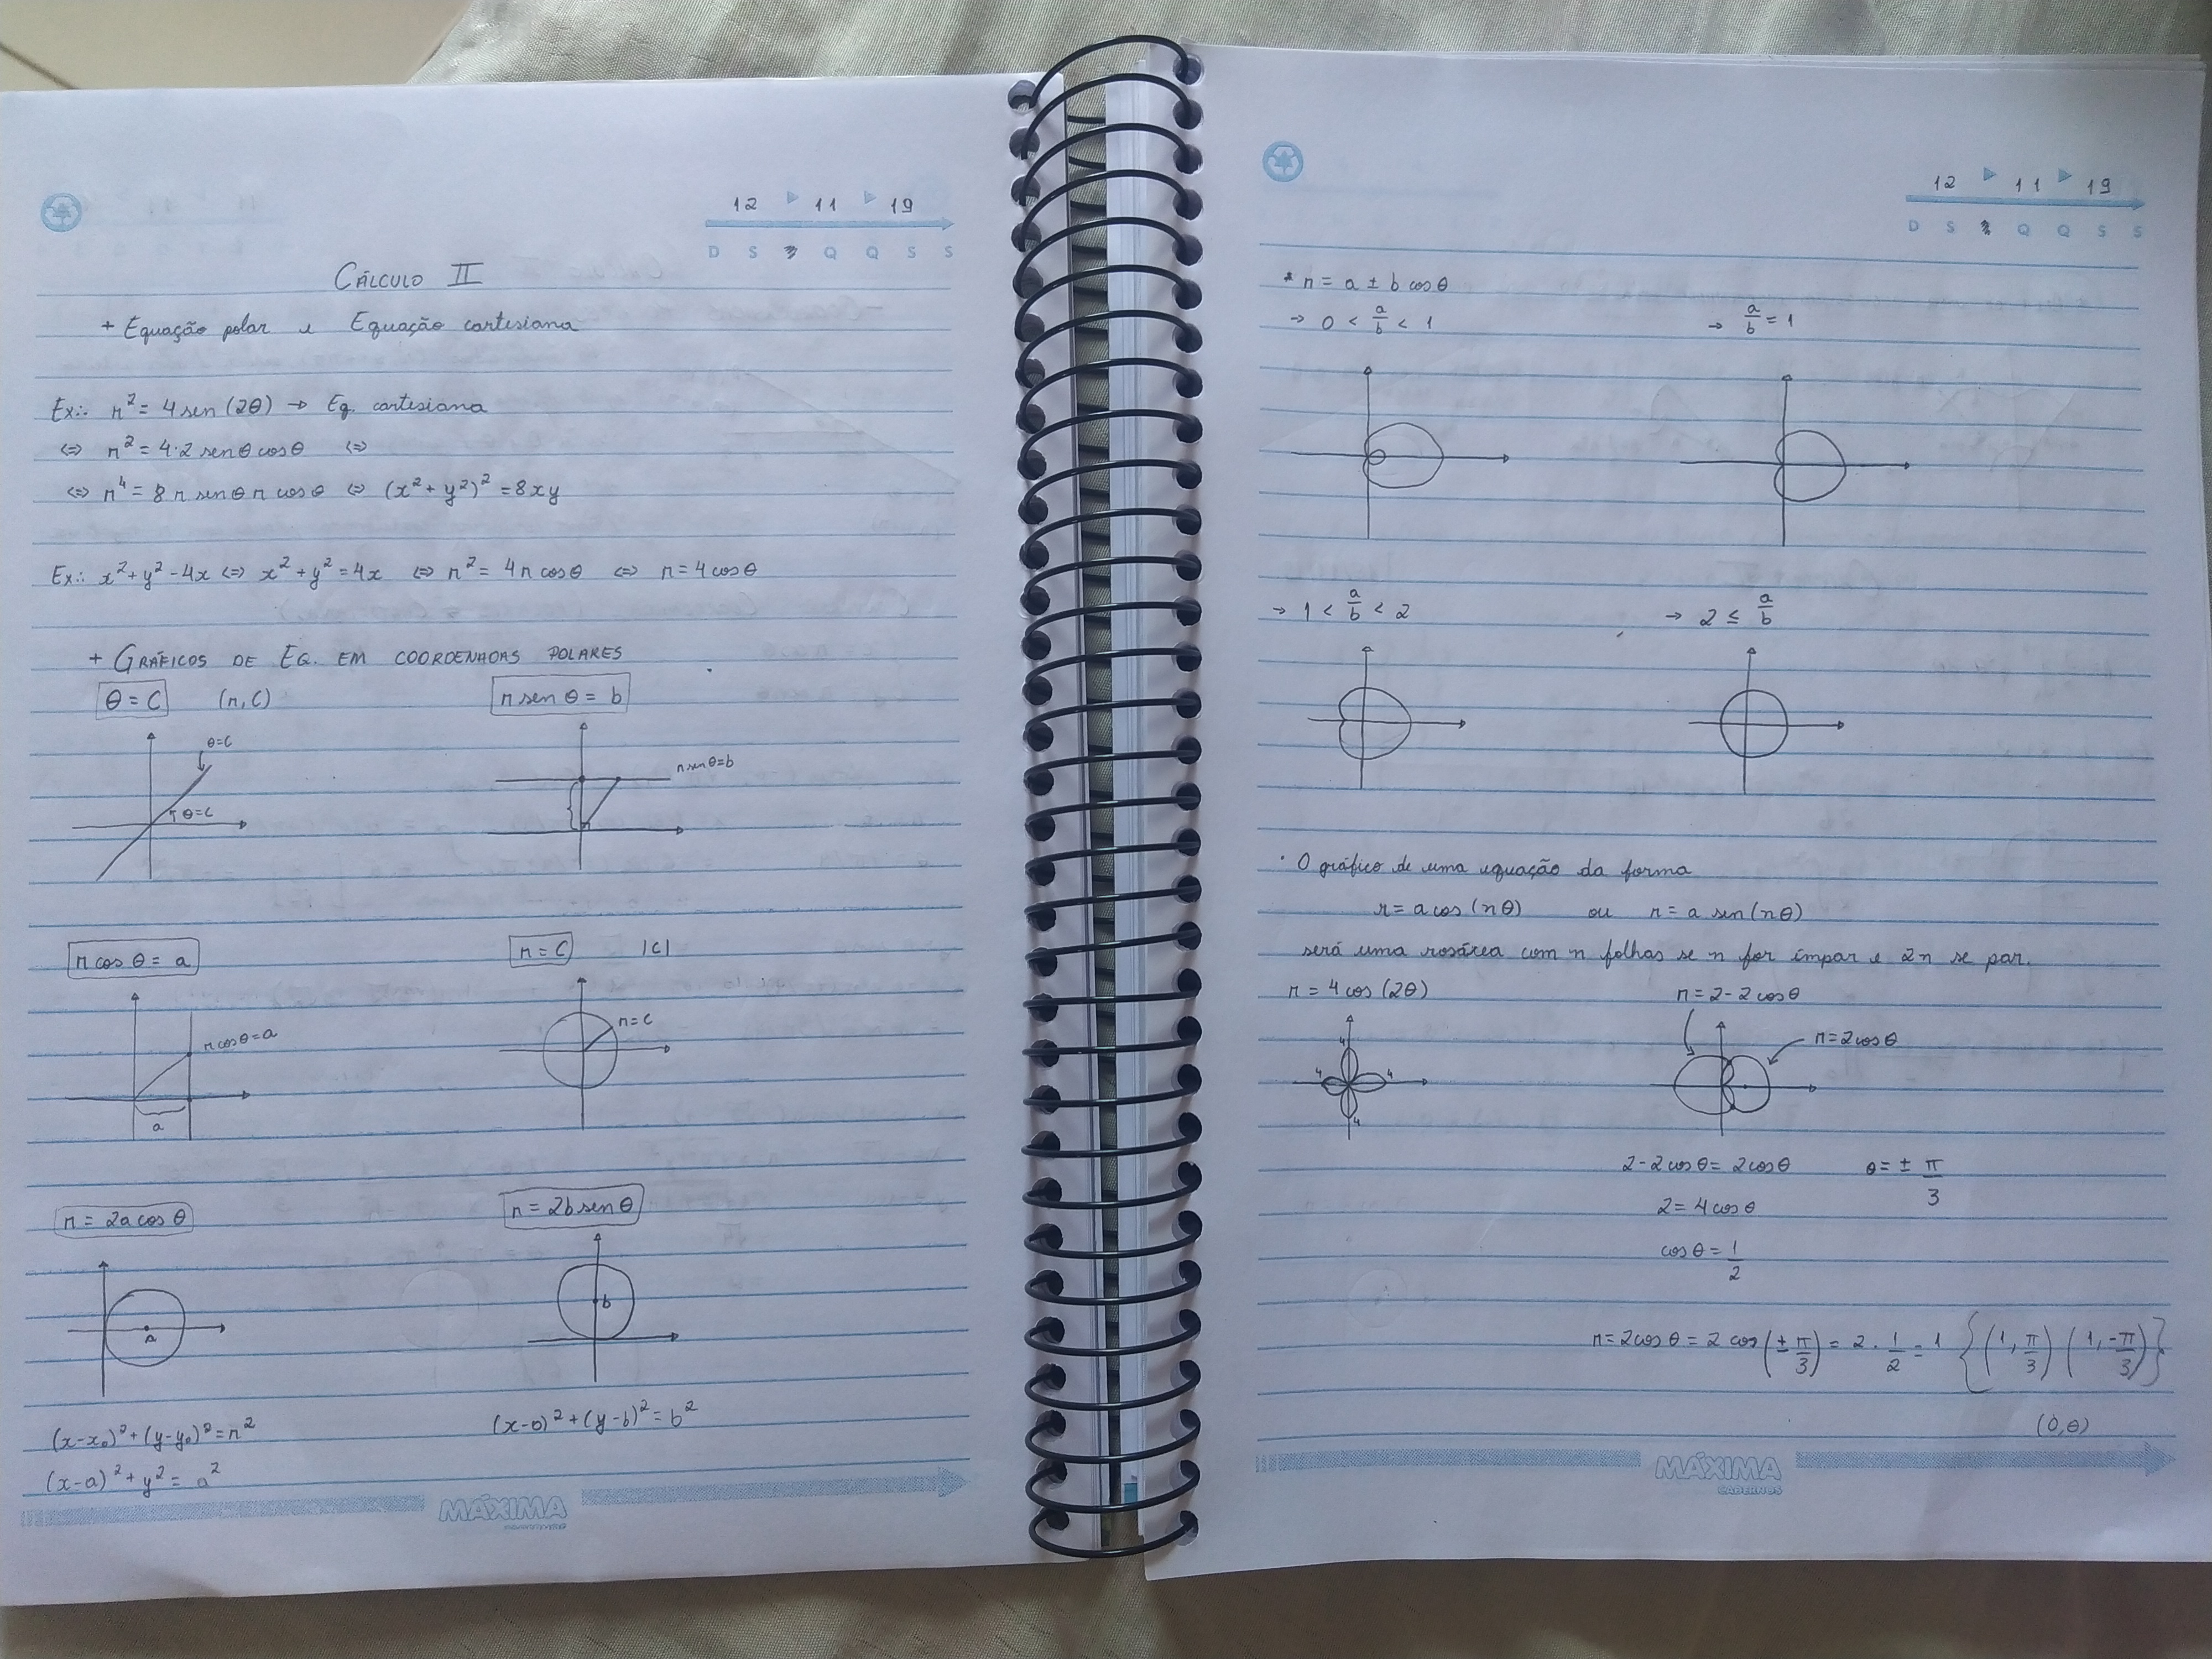 CÁLCULO II
12 11 19
D S T Q Q S S
+ Equação polar e Equação cartesiana
Ex.: r² = 4 sen(2θ) → Eq. cartesiana
⇔ r² = 4·2 sen θ cos θ ⇔
⇔ r⁴ = 8 r sen θ r cos θ ⇔ (x² + y²)² = 8xy
Ex.: x² + y² - 4x ⇔ x² + y² = 4x ⇔ r² = 4r cos θ ⇔ r = 4 cos θ
+ GRÁFICOS DE EQ. EM COORDENADAS POLARES
θ = C (r, C) r sen θ = b
θ=C
θ=C
r sen θ = b
r cos θ = a r = C |C|
r cos θ = a
a
r = C
r = 2a cos θ r = 2b sen θ
a
b
(x-x₀)² + (y-y₀)² = r² (x-0)² + (y-b)² = b²
(x-a)² + y² = a²
MÁXIMA
CADERNOS
12 11 19
D S T Q Q S S
* r = a ± b cos θ
→ 0 < a/b < 1 → a/b = 1
→ 1 < a/b < 2 → 2 ≤ a/b
· O gráfico de uma equação da forma
r = a cos(nθ) ou r = a sen(nθ)
será uma rosácea com n folhas se n for ímpar e 2n se par.
r = 4 cos(2θ) r = 2 - 2 cos θ
4 4 4 4
r = 2 cos θ
2 - 2 cos θ = 2 cos θ θ = ± π/3
2 = 4 cos θ
cos θ = 1/2
r = 2 cos θ = 2 cos(± π/3) = 2 · 1/2 = 1 {(1, π/3) (1, -π/3)}
(0, θ)
MÁXIMA
CADERNOS